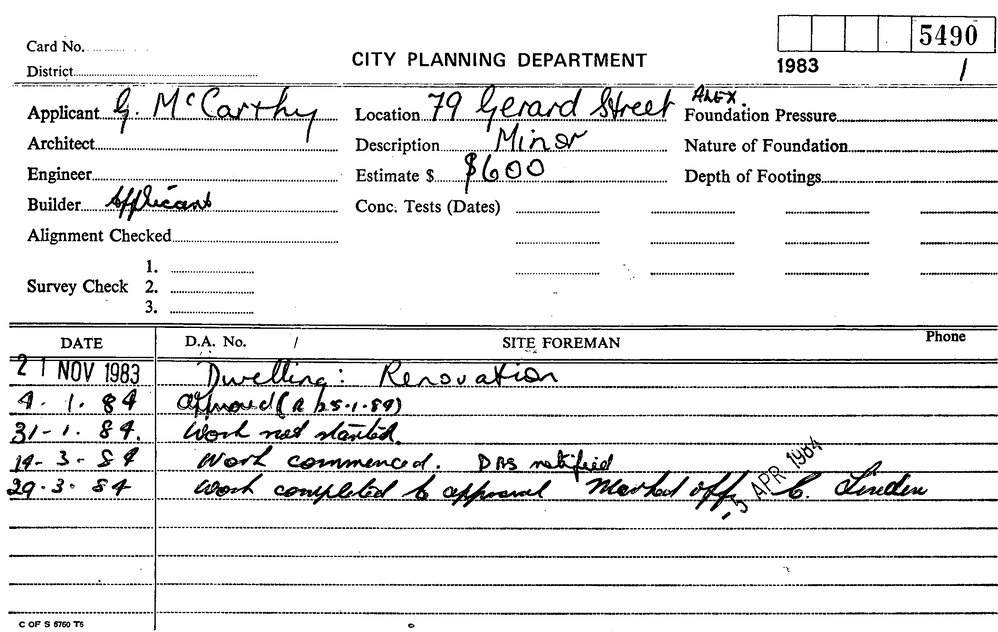 5490
Card No.
CITY PLANNING DEPARTMENT
District
1983 /
Applicant G. McCarthy Location 79 Gerard Street ALEX. Foundation Pressure
Architect Description Minor Nature of Foundation
Engineer Estimate $ $600 Depth of Footings
Builder Applicant Conc. Tests (Dates)
Alignment Checked
1.
Survey Check 2.
3.
DATE D.A. No. / SITE FOREMAN Phone
21 NOV 1983 Dwelling: Renovation
4. 1. 84 Approved (R 25-1-84)
31-1. 84. Work not started.
19-3-84 Work commenced. DBS notified
29-3-84 Work completed to approval Marked off C. Linden
5 APR 1984
C OF S 5760 T6